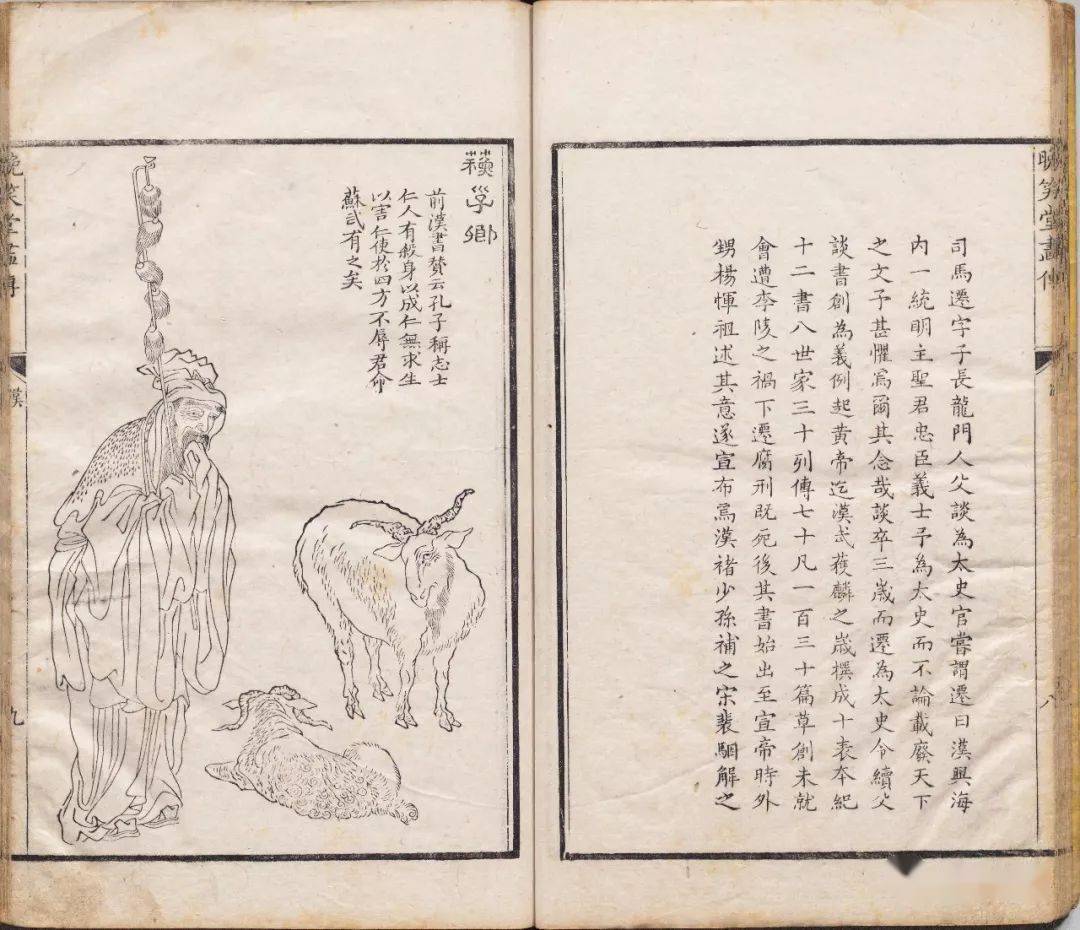 晚笑堂畫傳
八
司馬遷字子長龍門人父談為太史官嘗謂遷曰漢興海
內一統明主聖君忠臣義士予為太史而不論載廢天下
之文予甚懼焉爾其念哉談卒三歲而遷為太史令續父
談書創為義例起黃帝迄漢武獲麟之歲撰成十表本紀
十二書八世家三十列傳七十凡一百三十篇草創未就
會遭李陵之禍下遷腐刑既死後其書始出至宣帝時外
甥楊惲祖述其意遂宣布焉漢褚少孫補之宋裴駰解之
蘇子卿
前漢書贊云孔子稱志士
仁人有殺身以成仁無求生
以害仁使於四方不辱君命
蘇武有之矣
晚笑堂畫傳
漢
九